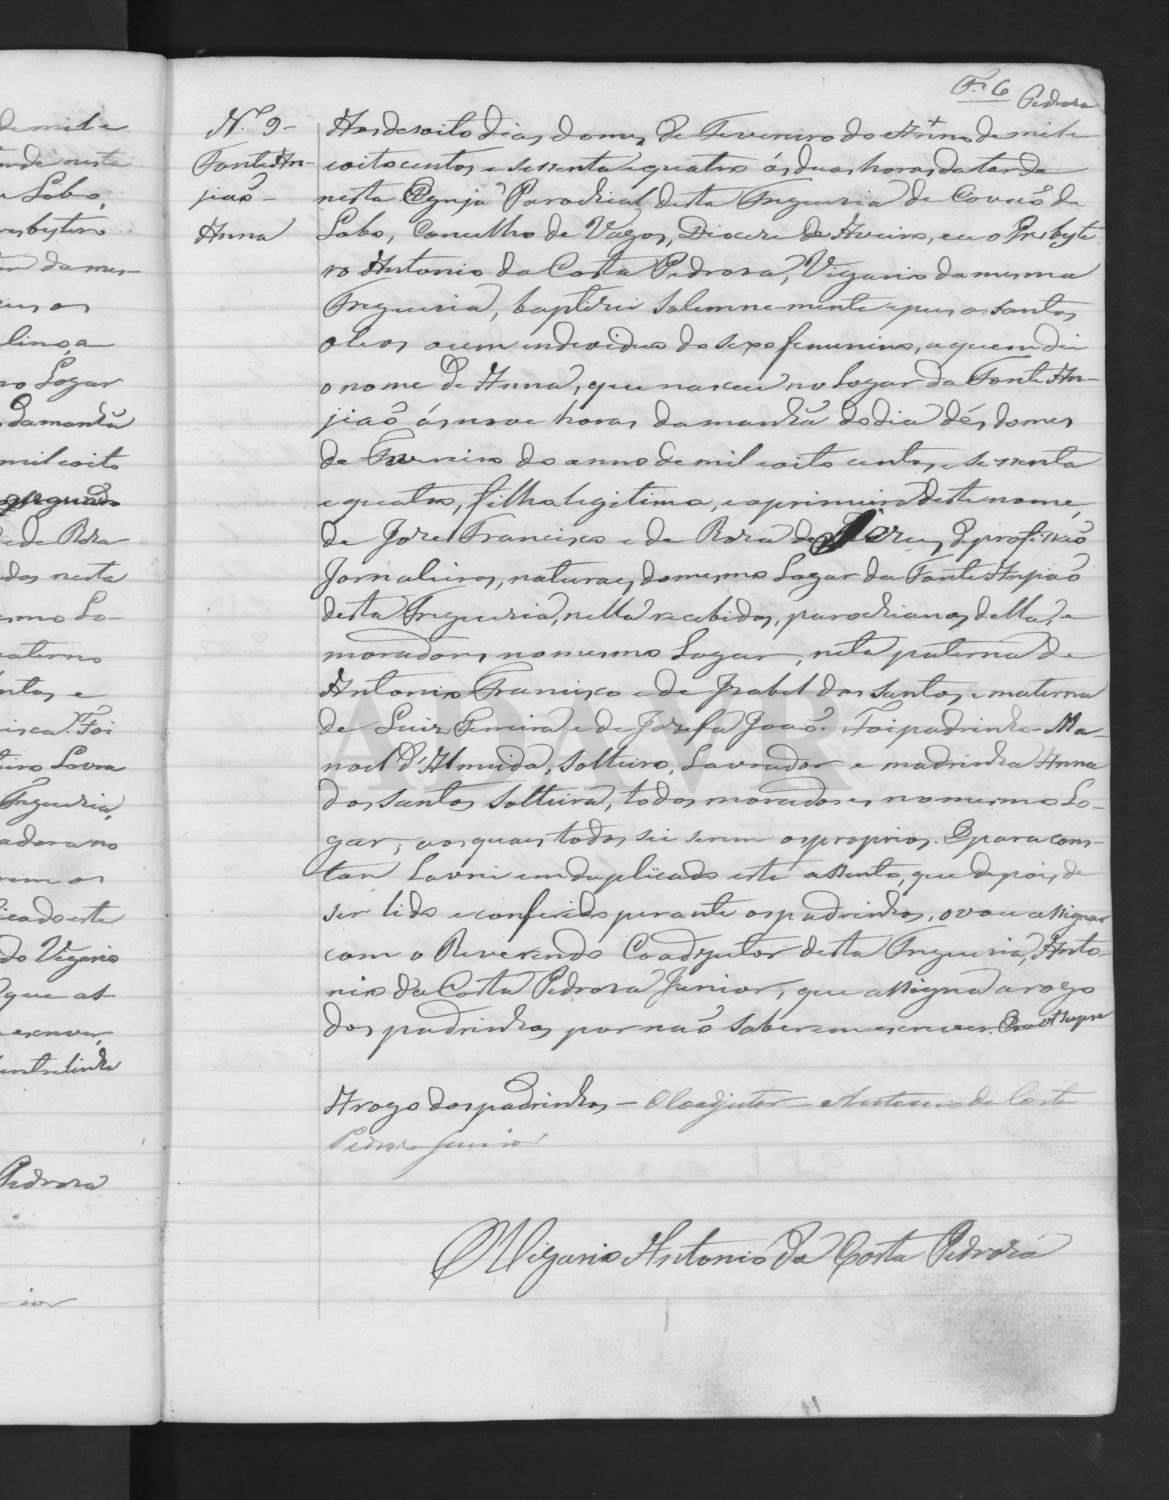 F. 6 Pedroza
N.º 9-
Fonte An-
jiaõ -
Anna
Aos desoito dias do mez de Fevereiro do Anno de mil e
oitocentos e sessenta e quatro ás duas horas da tarde
nesta Egreja Parochial desta Freguesia de Covaõ do
Lobo, Concelho de Vagos, Diocese de Aveiro, eu o Presbyte
ro Antonio da Costa Pedroza, Vigario da mesma
Freguesia, baptizei solemne-mente e pus os santos
oleos a um individuo do sexo femenino, a quem dei
o nome de Anna, que nasceu no Logar da Fonte An-
jiaõ ás nove horas da manhã do dia dés do mes
de Fevereiro do anno de mil oito centos e sessenta
e quatro, filha legitima, e a primeira deste nome,
de Joze Francisco e de Roza de profissaõ
Jornaleiros, naturaes do mesmo Logar da Fonte Anjiaõ
desta Freguesia, nella recebidos, parochianos della, e
moradores no mesmo Logar, neta paterna de
Antonio Francisco e de Izabel dos Santos e materna
de Luiz Ferreira e de Jozefa Joaõ. Foi padrinho Ma-
noel d'Almeida, solteiro, Lavrador e madrinha Anna
dos Santos solteira, todos moradores no mesmo Lo-
gar, aos quaes todos sei serem os proprios. E para cons-
tar Lavrei em duplicado este assento, que depois de
ser lido e conferido perante os padrinhos, o vou assignar
com o Reverendo Coadjutor desta Freguesia, Anto-
nio da Costa Pedroza Junior, que assigna a rogo
dos padrinhos por naõ saberem escrever. Era ut supra
A rogo dos padrinhos - O Coadjutor Antonio da Costa
Pedroza Junior
O Vigario Antonio da Costa Pedroza
de mil e
nesta
Lobo,
resbytero
da mes-
os
linça
no Logar
da manhã
mil oito
segundo
e de Roza
dos nesta
esmo Lo-
aterno
ntos e
Foi
Lavra
Freguesia,
adora no
rem os
icado este
do Vigario
que as-
escrever,
entrelinha
Pedroza
ior
ADAVR